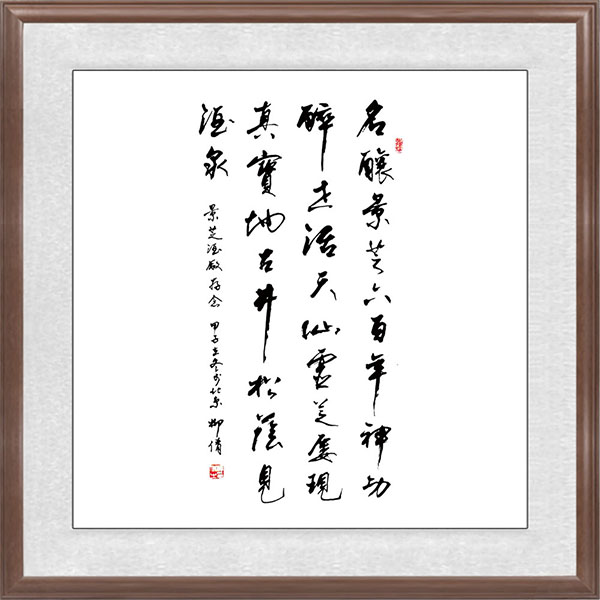 名釀景芝六百年神功
醉出活天仙靈芝屢現
真寶地古井松蔭見
酒泉
景芝酒廠存念 甲子立冬於北京 柳倩